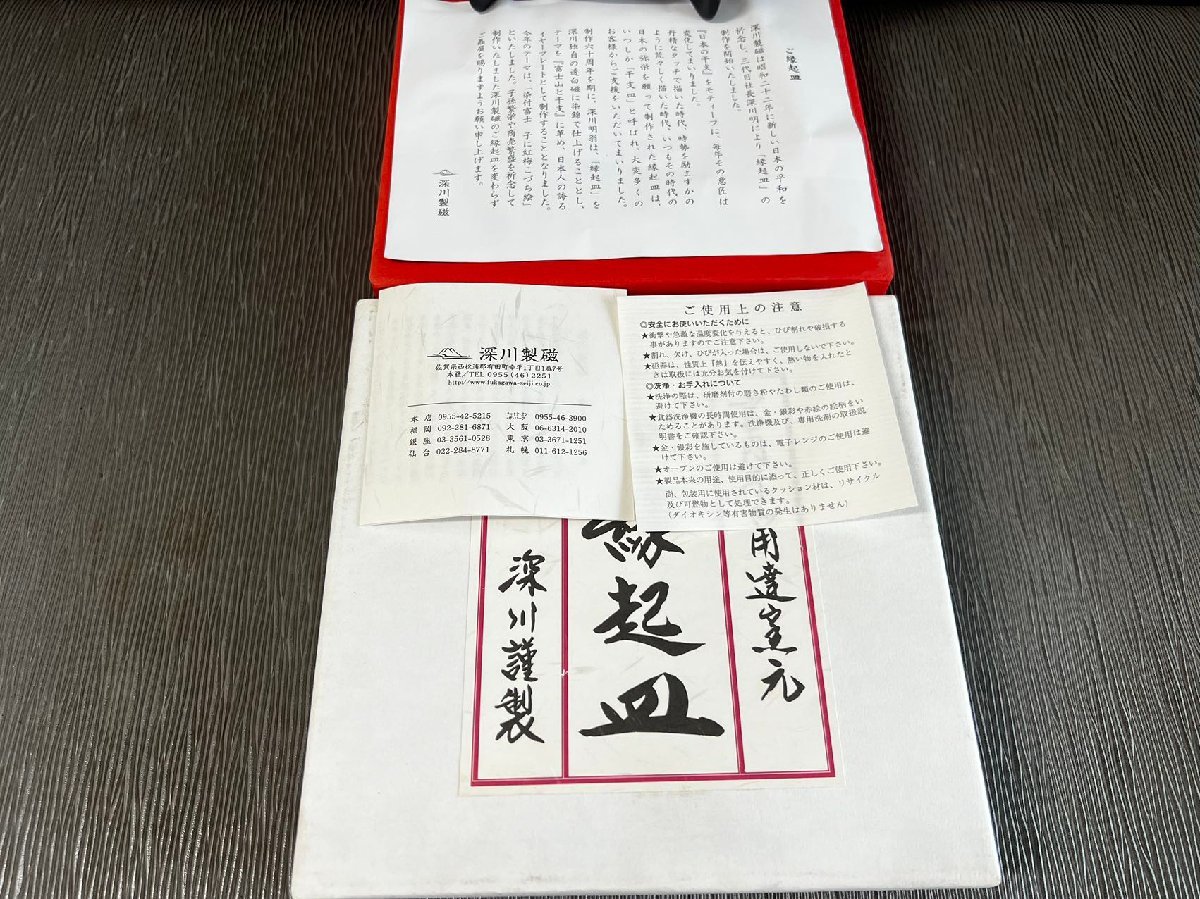 ご縁起皿
深川製磁は昭和二十二年に新しい日本の平和を
祈念し、三代目社長深川明により「縁起皿」の
制作を開始いたしました。
『日本の干支』をモティーフに、毎年その意匠は
変化してまいりました。
丹精なタッチで描いた時代、時勢を励ますかの
ように荒々しく描いた時代、いつもその時代の
日本の弥栄を願って制作された縁起皿は、
いつしか「干支皿」と呼ばれ、大変多くの
お客様からご支援をいただいてまいりました。
制作六十周年を期に、深川明羽は、「縁起皿」を
深川独自の透白磁に染錦で仕上げることとし、
テーマも『富士山と干支』に革め、日本人の誇る
イヤープレートとして制作することとなりました。
今年のテーマは、「染付富士 子に紅梅こづち絵」
といたしました。子孫繁栄や商売繁盛を祈念して
制作いたしました深川製磁のご縁起皿を変わらず
ご愛顧を賜りますようお願い申し上げます。
深川製磁
深川製磁
佐賀県西松浦郡有田町幸平1丁目1番7号
本社/TEL 0955(46)2251
http://www.fukagawa-seiji.co.jp/
本店 0955-42-5215
0955-46-3900
福岡 092-281-6871
大阪 06-6314-2010
銀座 03-3561-0528
東京 03-3671-1251
仙台 022-284-8771
札幌 011-612-1256
ご使用上の注意
◎安全にお使いいただくために
★衝撃や急激な温度変化を与えると、ひび割れや破損する
事がありますのでご注意下さい。
★割れ、欠け、ひびが入った場合は、ご使用しないで下さい。
★磁器は、性質上「熱」を伝えやすく、熱い物を入れたと
きは取扱には充分お気を付けて下さい。
◎洗浄・お手入れについて
★洗浄の際は、研磨剤付の磨き粉やたわし類のご使用は、
避けて下さい。
★食器洗浄機の長時間使用は、金・銀彩や赤絵の絵柄をい
ためることがあります。洗浄機及び、専用洗剤の取扱説
明書をご確認下さい。
★金・銀彩を施しているものは、電子レンジのご使用は避
けて下さい。
★オーブンのご使用は避けて下さい。
★製品本来の用途、使用目的に添って、正しくご使用下さい。
尚、包装用に使用されているクッション材は、リサイクル
及び可燃物として処理できます。
(ダイオキシン等有害物質の発生はありません)
用達窯元
縁起皿
深川謹製